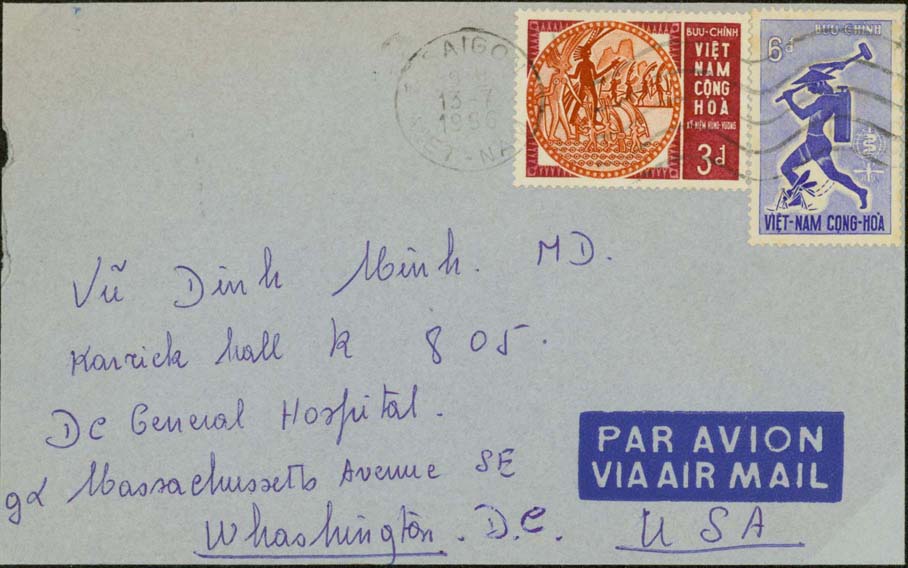 SAIGON
13-7
1966
VIET-NAM
BƯU-CHÍNH
VIỆT
NAM
CỘNG
HOÀ
KỶ-NIỆM HÙNG-VƯƠNG
3đ
6đ BƯU-CHÍNH
VIỆT-NAM CỘNG-HOÀ
Vũ Dinh Minh. MD.
Karrick hall k 805.
DC General Hospital.
Massachussetts Avenue SE
Whashington. D.C. USA
PAR AVION
VIA AIR MAIL